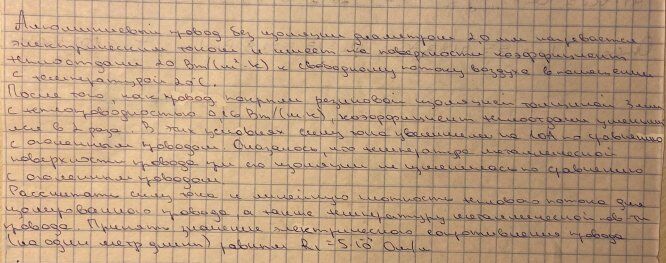 Алюминиевый провод без изоляции диаметром 20 мм нагревается
электрическим током и имеет на поверхности коэффициент
теплоотдачи 20 Вт/(м²·К) к свободному потоку воздуха в помещении
с температурой 20°С.
После того, как провод покрыли резиновой изоляцией толщиной 3 мм
с теплопроводностью Вт/(м·К), коэффициент теплоотдачи уменьши
лся в 2 раза. В тих условиях силу тока увеличили на 10А по сравнению
с оголенным проводом. Оказалось, что температура металлической
поверхности провода при его изоляции не изменилась по сравнению
с оголенным проводом.
Рассчитать силу тока и линейную плотность теплового потока для
изолированного провода, а также температуру металлической пов-ти
провода. Принять значение электрического сопротивления провода
(на один метр длины) равным Ом/м